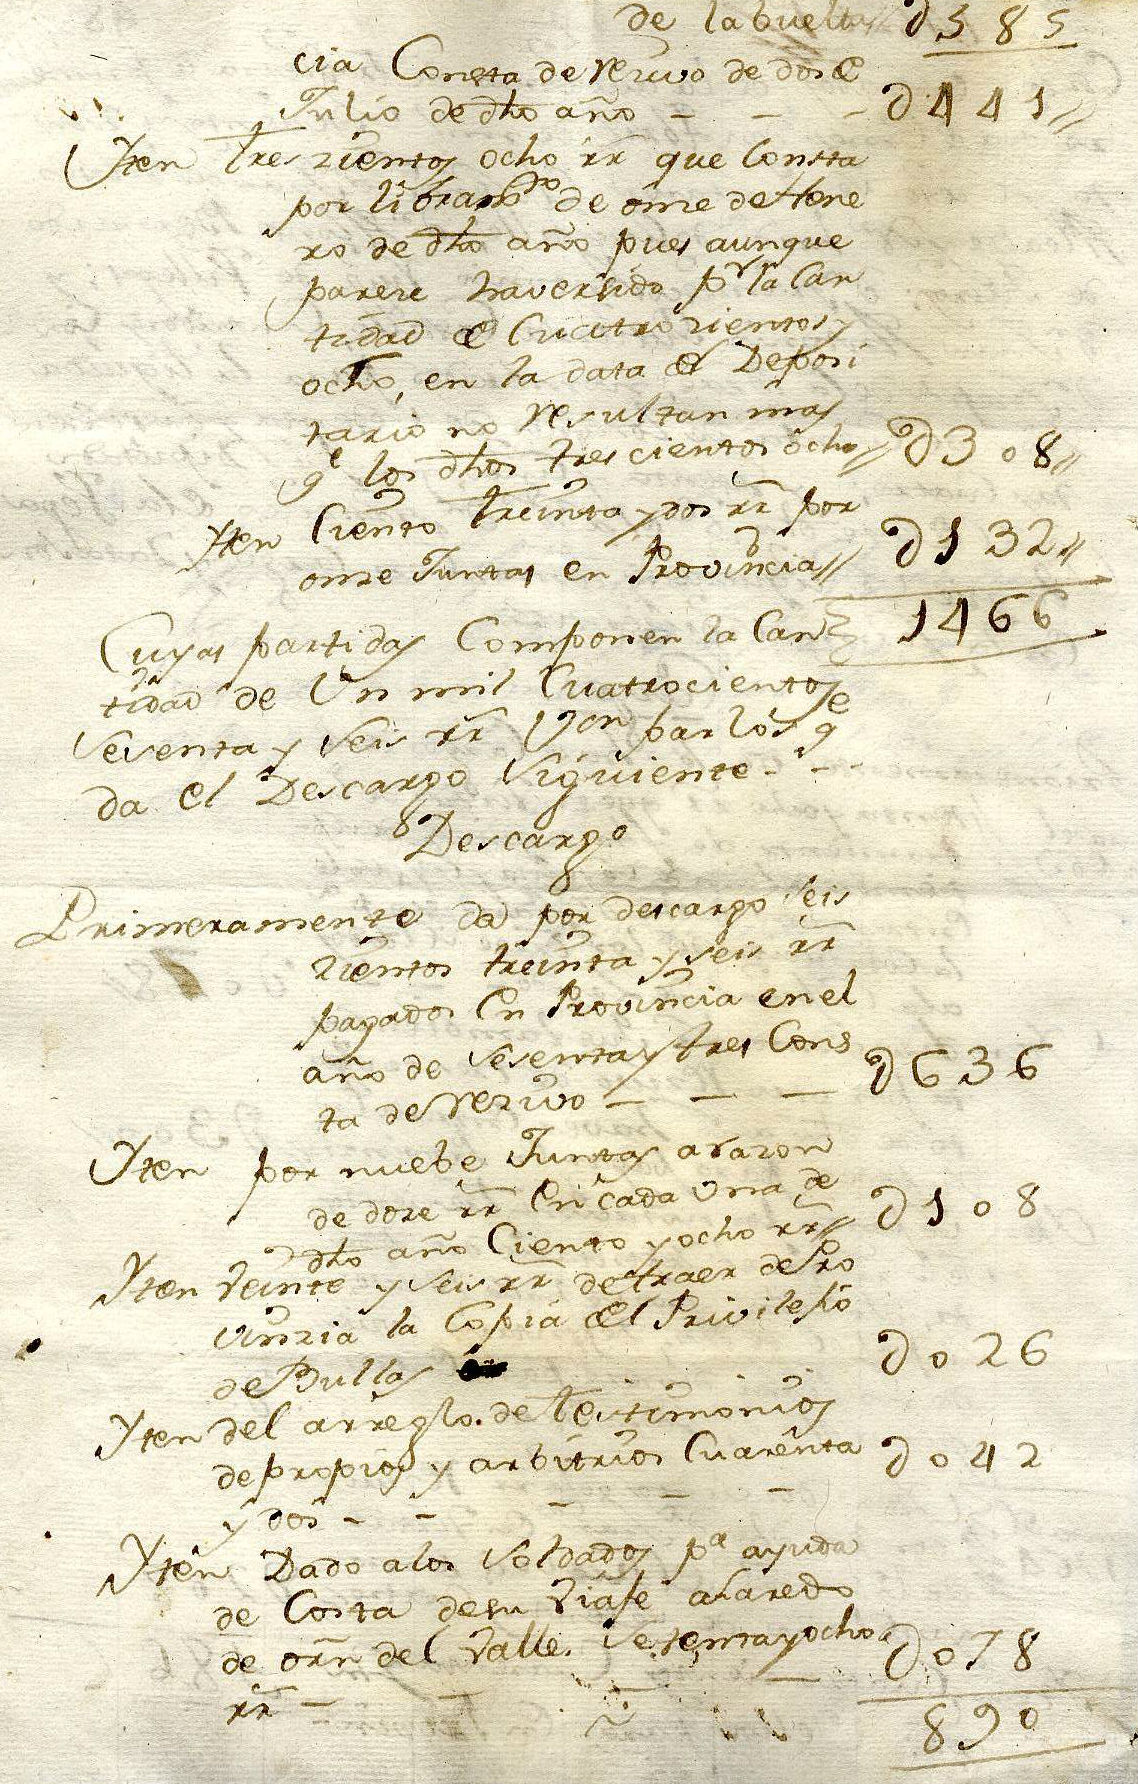 de la buelta D585
cia Consta de reciuo de doze
Julio de dho año - - - D441//
Yten trescientos ocho rr que Consta
por libram.to de onze de Hene
ro de dho año pues aunque
pareze haversido pr la Can
tidad de Cuatrozientos y
ocho, en la data del Deposi
tario no resultan mas
qe los dhos trescientos ocho// D308//
Yten Ciento treinta y dos rr por
onze Juntas en Provincia// D132//
Cuyas partidas Componen la Can 1466
tidad de Un mil Cuatrocientos
sesenta y seis rr von para los qe
da el Descargo siguiente - - -
Descargo
Primeramente da por descargo seis
zientos treinta y seis rr
pagados En Provincia en el
año de sesenta y tres Cons
ta de reziuo - - - D636
Yten por nuebe Juntas a razon
de doze rr En cada Una de D108
dho año Ciento y ocho rr//
Yten veinte y seis rr de traer de Pro
vinzia la Copia del Privilejio
de Bullas D026
Yten del arreglo de testimonios
de propios y arbitrios Cuarenta D042
y dos - - - - -
Yten Dado a los soldados pa ayuda
de Costa de su viaje a Laredo
de orn del valle. setenta y ocho D078
rr - - - -
890